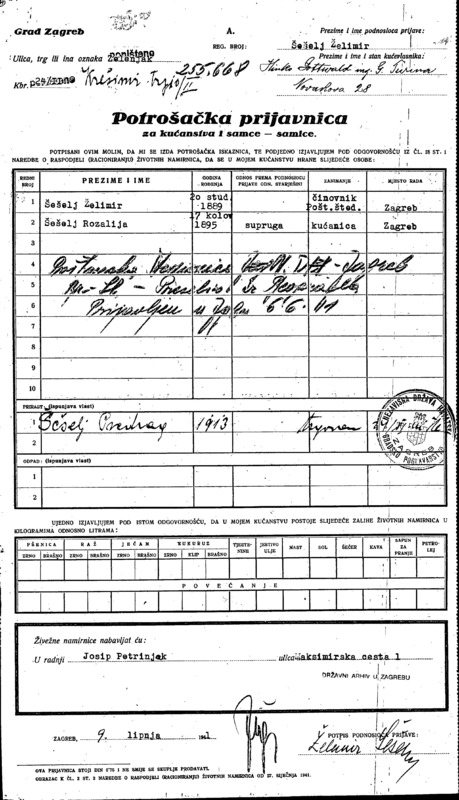 Grad Zagreb
A.
REG. BROJ:
Prezime i ime podnosioca prijave:
Šešelj Želimir
Ulica, trg ili ina oznaka
poništeno
Zelenjak
Kbr.
255.668
Prezime i ime i stan kućevlasnika:
Novakova 28
Potrošačka prijavnica
za kućanstva i samce — samice.
POTPISANI OVIM MOLIM, DA MI SE IZDA POTROŠAČKA ISKAZNICA, TE PODJEDNO IZJAVLJUJEM POD ODGOVORNOŠĆU IZ ČL. 18 ST. 1
NAREDBE O RASPODJELI (RACIONIRANJU) ŽIVOTNIH NAMIRNICA, DA SE U MOJEM KUĆANSTVU HRANE SLIJEDEĆE OSOBE:
REDNI BROJ
PREZIME I IME
GODINA ROĐENJA
ODNOS PREMA PODNOSIOCU PRIJAVE ODN. STARJEŠINI
ZANIMANJE
MJESTO RADA
1 Šešelj Želimir 20 stud. 1889 činovnik Pošt.šted. Zagreb
2 Šešelj Rozalija 17 kolov 1895 supruga kućanica Zagreb
3
4 Zagreb
5
6 Prijavljen 6/6
7
8
9
10
PRIRAST (ispunjava vlast)
1 Šešelj Predrag 1913
2
NEZAVISNA DRŽAVA HRVATSKA
GRADSKO POGLAVARSTVO
ZAGREB
OTPAD: (ispunjava vlast)
1
2
UJEDNO IZJAVLJUJEM POD ISTOM ODGOVORNOŠĆU, DA U MOJEM KUĆANSTVU POSTOJE SLIJEDEĆE ZALIHE ŽIVOTNIH NAMIRNICA U
KILOGRAMIMA ODNOSNO LITRAMA:
PŠENICA RAŽ JEČAM KUKURUZ TJESTENINE JESTIVO ULJE MAST SOL ŠEĆER KAVA SAPUN ZA PRANJE PETROLEJ
ZRNO BRAŠNO ZRNO BRAŠNO ZRNO BRAŠNO ZRNO KLIP BRAŠNO
POVEĆANJE
Živežne namirnice nabavljat ću:
U radnji Josip Petrinjak ulica Maksimirska cesta 1
DRŽAVNI ARHIV U ZAGREBU
ZAGREB, 9. lipnja 1941
POTPIS PODNOSIOCA PRIJAVE:
Želimir Šešelj
OVA PRIJAVNICA STOJI DIN 0'75 I NE SMIJE SE SKUPLJE PRODAVATI.
OBRAZAC K ČL. 2 ST. 2 NAREDBE O RASPODJELI (RACIONIRANJU) ŽIVOTNIH NAMIRNICA OD 27. SIJEČNJA 1941.